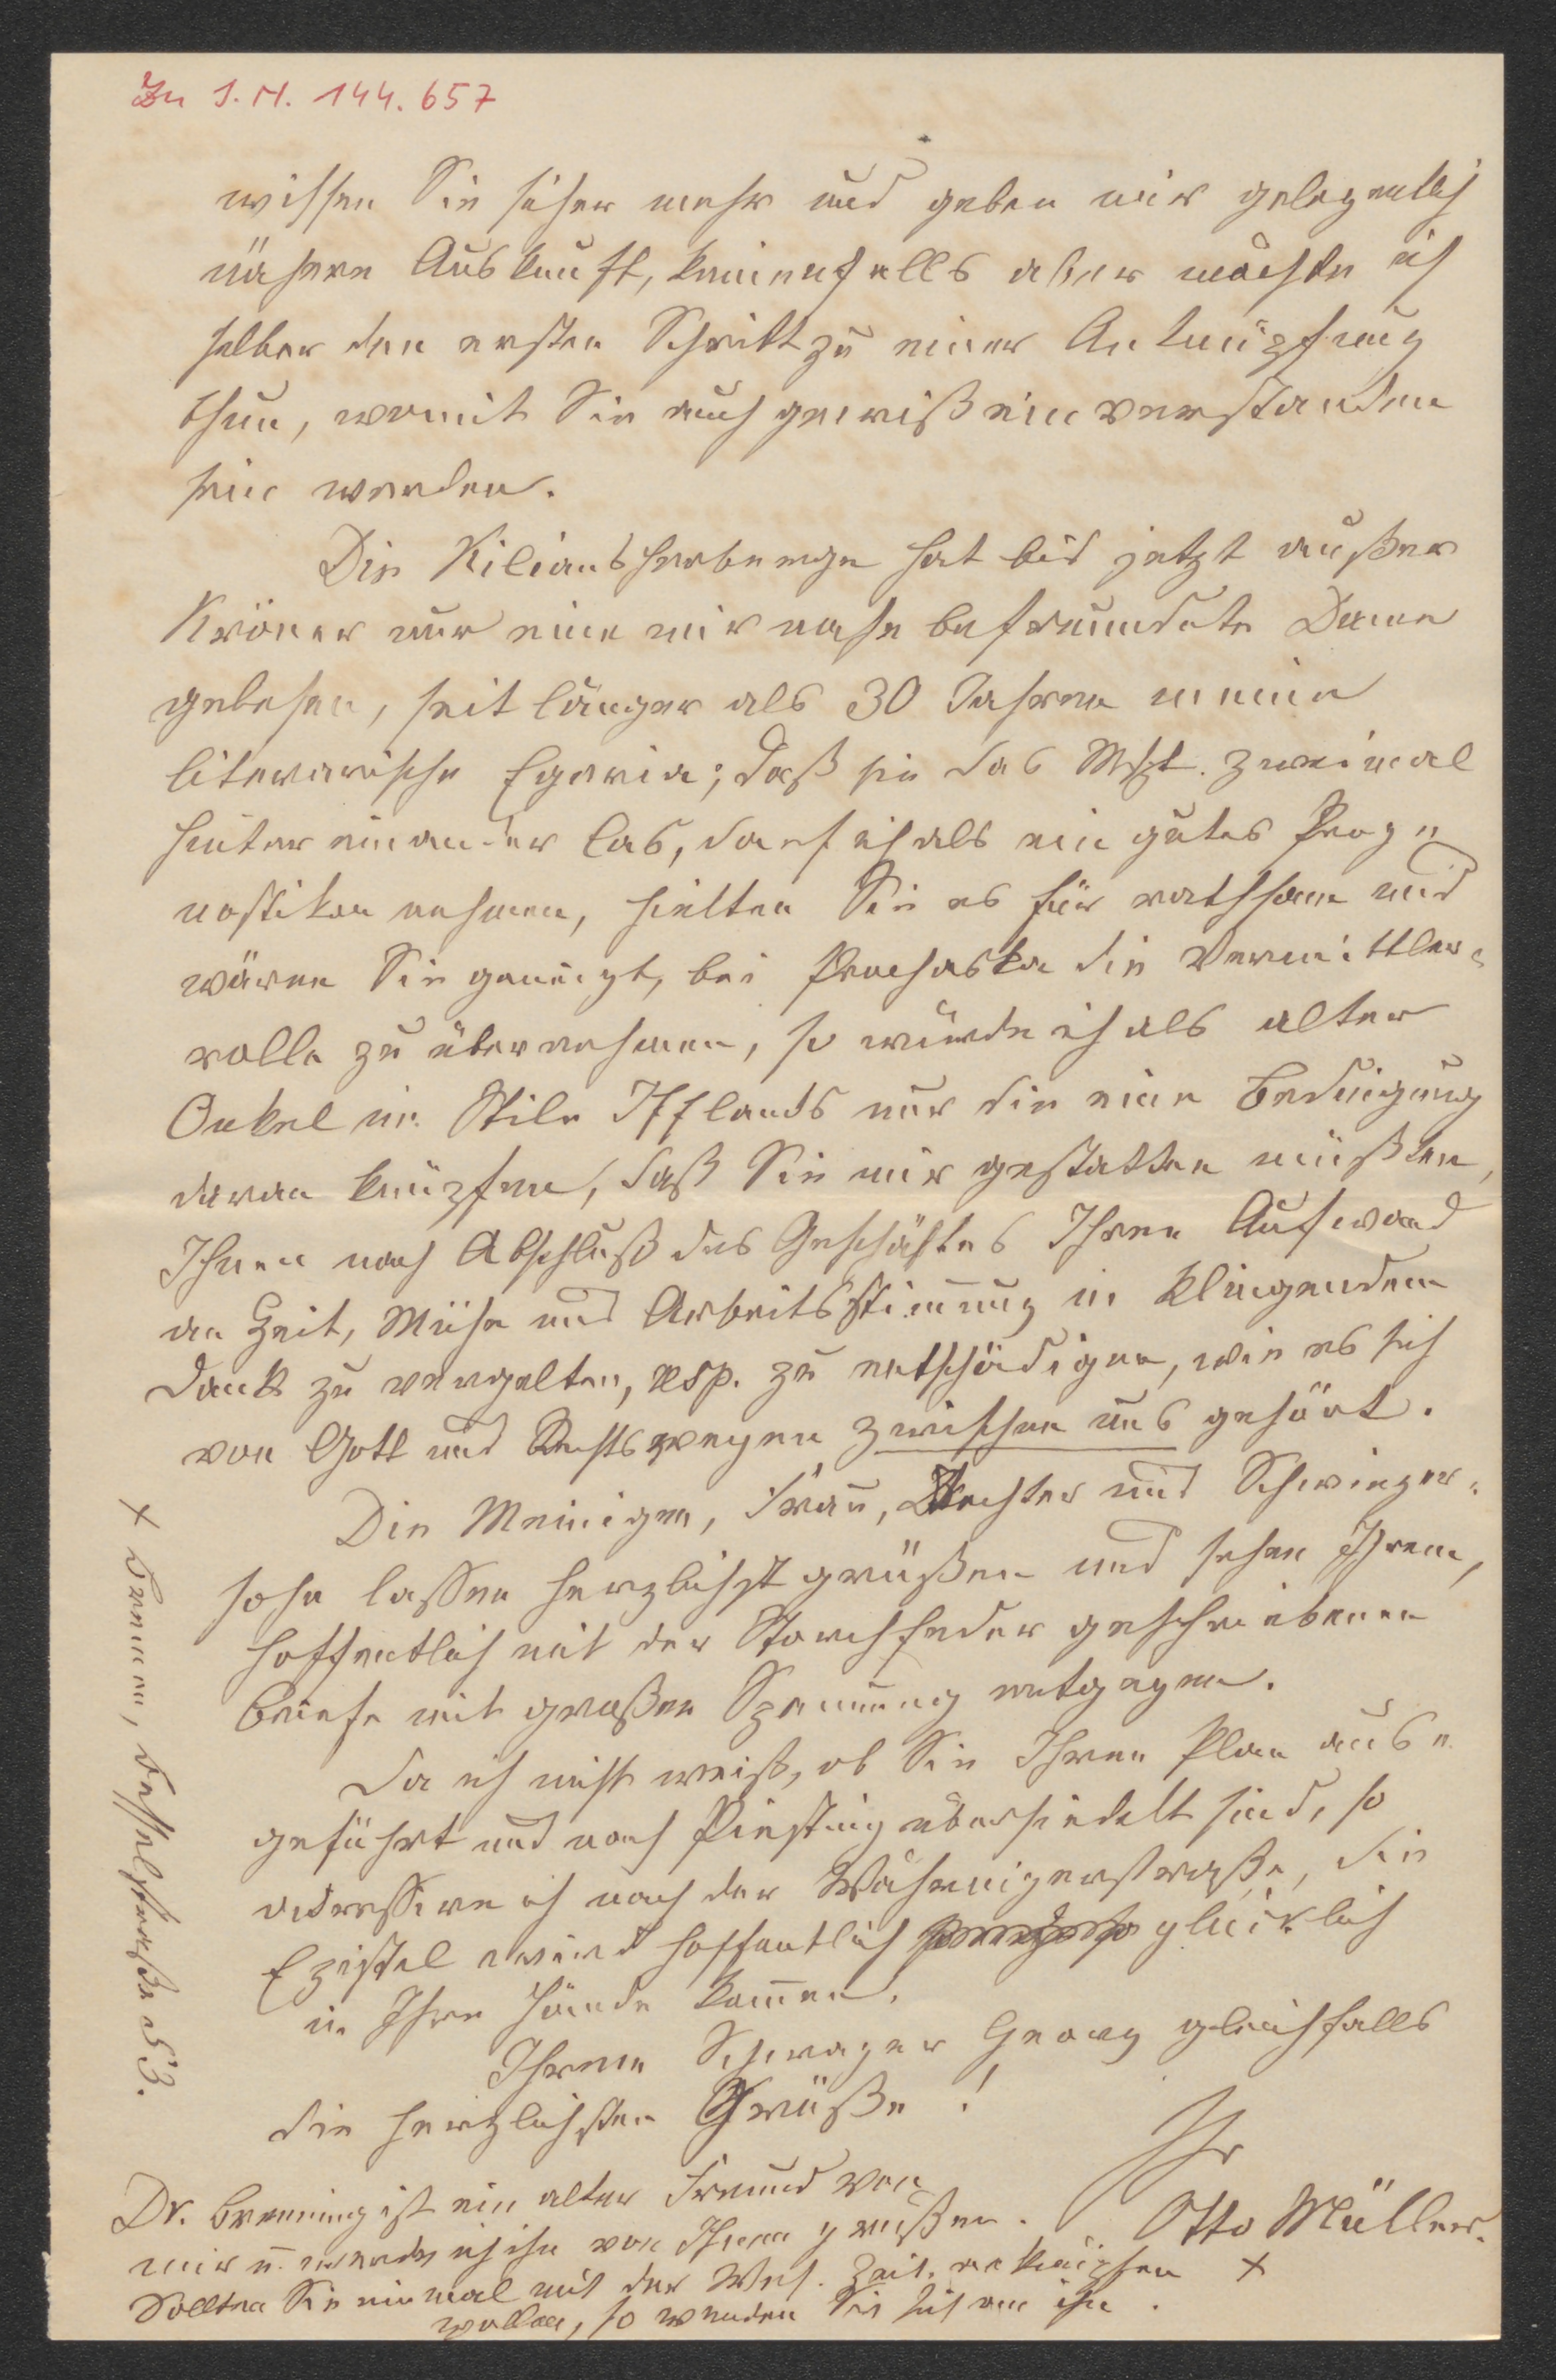 Zu I.N. 144.657
wissen Sie sicher mehr und geben mir gelegentlich
nähere Auskunft, keinenfalls aber möchte ich
selber den ersten Schritt zu einer Anknüpfung
thun, womit Sie auch gewiß einverstanden
sein werden.
Die Kiliansherberge hat bis jetzt außer
Kröner nur eine mir nahe befreundete Dame
gelesen, seit länger als 30 Jahren meine
literarische Egeria; daß sie das Mskt. zweimal
hinter einander las, darf ich als ein gutes Prog-
nostikon nehmen, hielten Sie es für rathsam und
wären Sie geneigt, bei Prochaska die Vermittler-
rolle zu übernehmen, so würde ich als alter
Onkel im Stile Ifflands nur die eine Bedingung
daran knüpfen, daß Sie mir gestatten müßten,
Ihnen nach Abschluß des Geschäftes Ihren Aufwand
an Zeit, Mühe und Arbeitsstimmung in klingendem
Dank zu vergelten, resp. zu entschädigen, wie es sich
von Gott und Rechtswegen zwischen uns gehört.
Die Meinigen, Frau, Tochter und Schwieger-
sohn lassen herzlichst grüßen und sehen Ihrem,
hoffentlich mit der Storchfeder geschriebenen
Briefe mit großer Spannung entgegen.
Da ich nicht weiß, ob Sie Ihren Plan aus-
geführt und nach Piesting übersiedelt sind, so
adressire ich nach der Währingerstraße, die
Epistel wird hoffentlich glücklich
in Ihre Hände kommen.
Ihrem Schwager Georg gleichfalls
die herzlichsten Grüße!
Ihr
Otto Müller.
Dr. Brenning ist ein alter Freund von
mir u. werde ich ihn von Ihnen grüßen.
Sollten Sie einmal mit der Wes. Zeit. anknüpfen +
wollen, so wenden Sie sich an ihn.
+ Bremen, Besselstraße 53.